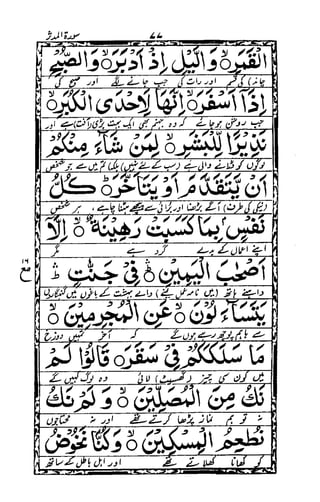 سورة المدثر ٧٧
الْقَمَرِ ۙ وَالَّيْلِ اِذْ اَدْبَرَ ۙ وَالصُّبْحِ
چاند کی قسم اور رات کی جب جانے لگے اور صبح کی
اِذَآ اَسْفَرَ ۙ اِنَّهَا لَاِحْدَى الْكُبَرِ ۙ
جب روشن ہوجائے کہ وہ جہنم بھی ایک بہت بڑی (آفت) ہے اور
نَذِيْرًا لِّلْبَشَرِ ۙ لِمَنْ شَآءَ مِنْكُمْ
لوگوں کو ڈرانے والی ہے (سب کے لئے نہیں) بلکہ تم میں سے ہر شخص
اَنْ يَّتَقَدَّمَ اَوْ يَتَاَخَّرَ ؕ كُلُّ
(نیکی کی طرف) آگے بڑھنا اور برائی سے پیچھے ہٹنا چاہے ہر شخص
نَفْسٍۢ بِمَا كَسَبَتْ رَهِيْنَةٌ ۙ اِلَّآ
اپنے اعمال کے بدلے گرو ہے مگر
اَصْحٰبَ الْيَمِيْنِ ۛؕ فِيْ جَنّٰتٍ ۛؕ
داہنے ہاتھ (میں نامہ عمل لینے) والے بہشت کے باغوں میں گنہگاروں
يَتَسَآءَلُوْنَ ۙ عَنِ الْمُجْرِمِيْنَ ۙ
سے باہم پوچھ رہے ہوں گے کہ آخر تمہیں دوزخ
مَا سَلَكَكُمْ فِيْ سَقَرَ قَالُوْا لَمْ
میں کون سی چیز (گھسیٹ) لائی وہ لوگ کہیں گے کہ
نَكُ مِنَ الْمُصَلِّيْنَ ۙ وَلَمْ نَكُ
نہ تو ہم نماز پڑھا کرتے تھے اور نہ محتاجوں
نُطْعِمُ الْمِسْكِيْنَ ۙ وَكُنَّا نَخُوْضُ
کو کھانا کھلاتے تھے اور اہل باطل کے ساتھ